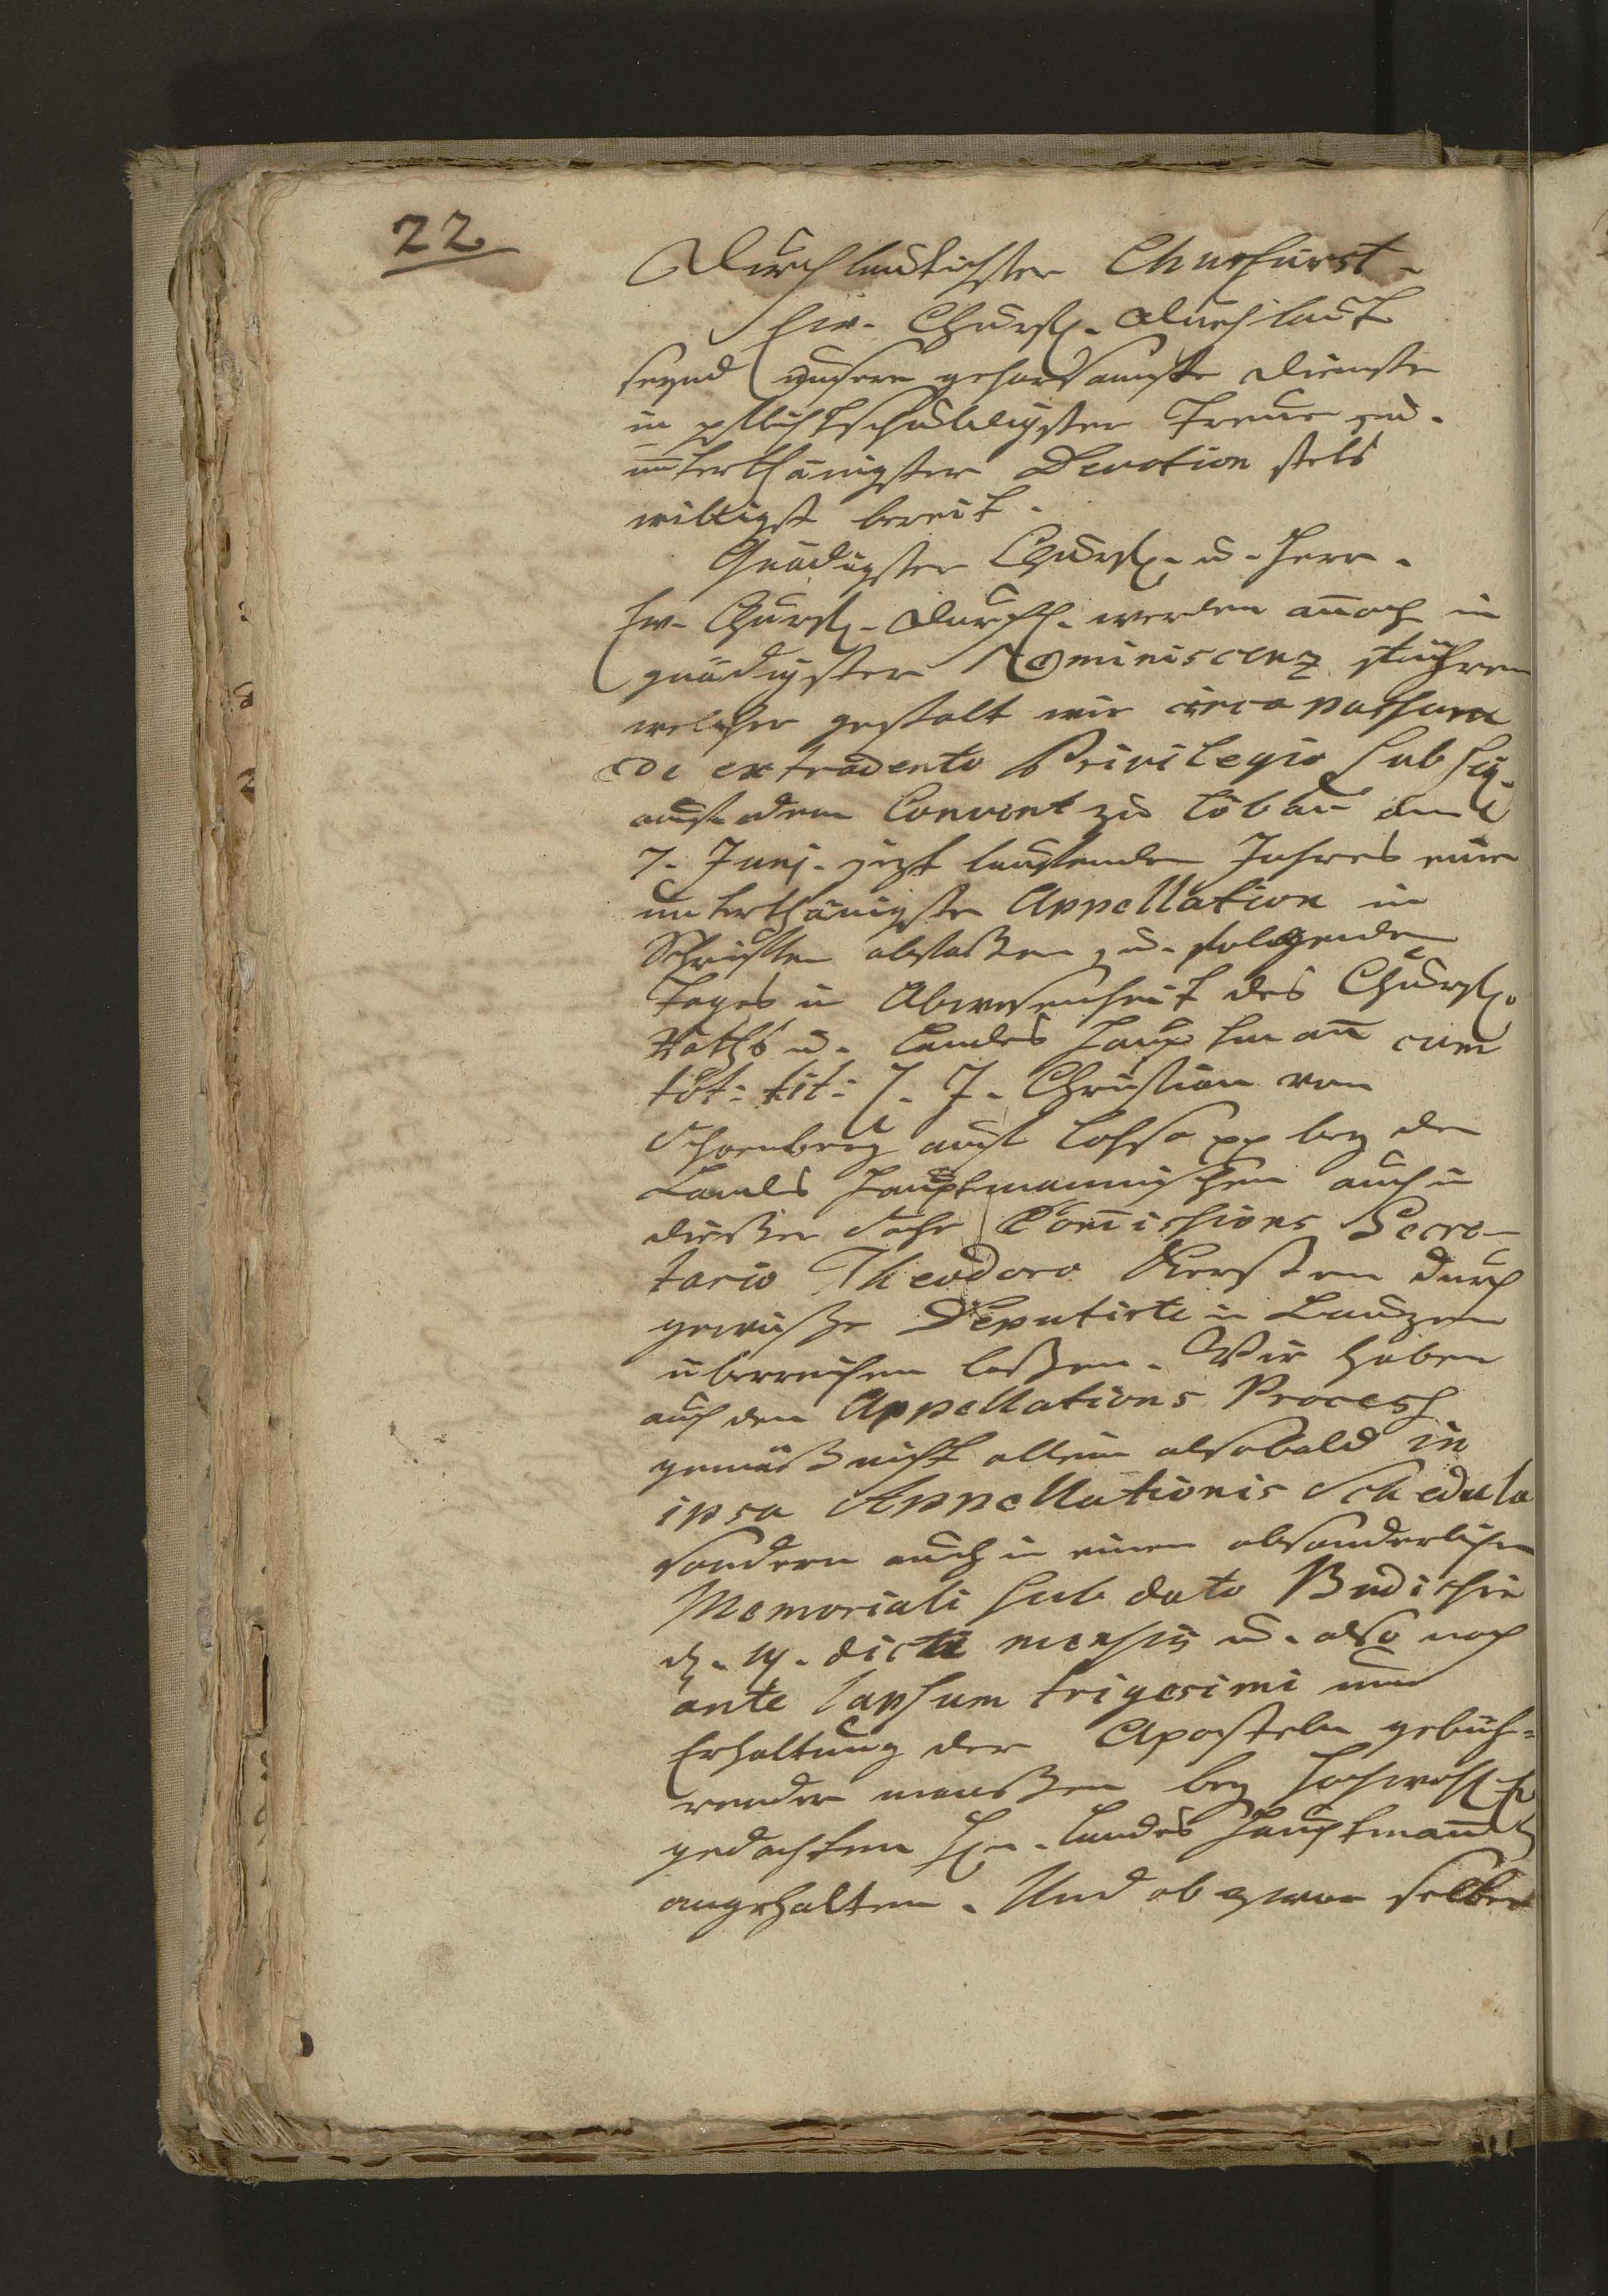 22
Durchlauchtichster Churfürst.
Ew. Churfl. Durchlaucht
seynd unsere gehorsamste Dienste
in pflichtschuldigster Treue u.
unterthänigster Devotion stets
willigst bereit.
Gnädigster Churfl. u. Herr.
Ew. Churfl. Durchl. werden annoch in
gnädigster Reminiscenz führen
welcher gestalt wir circa passum
de extradendo Privilegio sub sig.
auf dem Convent zu Löbau den
7. Junj. jezt lauffenden Jahres eine
unterthänigste Appellation in
Schrifften abfaßen, u. folgenden
Tages in Abwesenheit des Churfl.
Raths u. Landes Hauptmann cum
tot: tit: J. J. Christian von
Schoenberg auf Lohsa pp bey den
Landes Hauptmannischen auch in
dießer Sache Commissions Secre-
tario Theodoro Kersten durch
gewisse Deputirte in Bautzen
überreichen laßen. Wir haben
auch dem Appellations Process
gemäß nicht allein alsobald in
ipsa Appellationis Schedula
sondern auch in einen absonderlichen
Memoriali sub dato Budissin
d. 14. dicti mensis u. also noch
ante lapsum trigesimi um
Erhaltung der Aposteln gebüh-
render maaßen bey hochwohl
gedachten H. Landes Hauptmann
angehalten. Und ob zwar selber